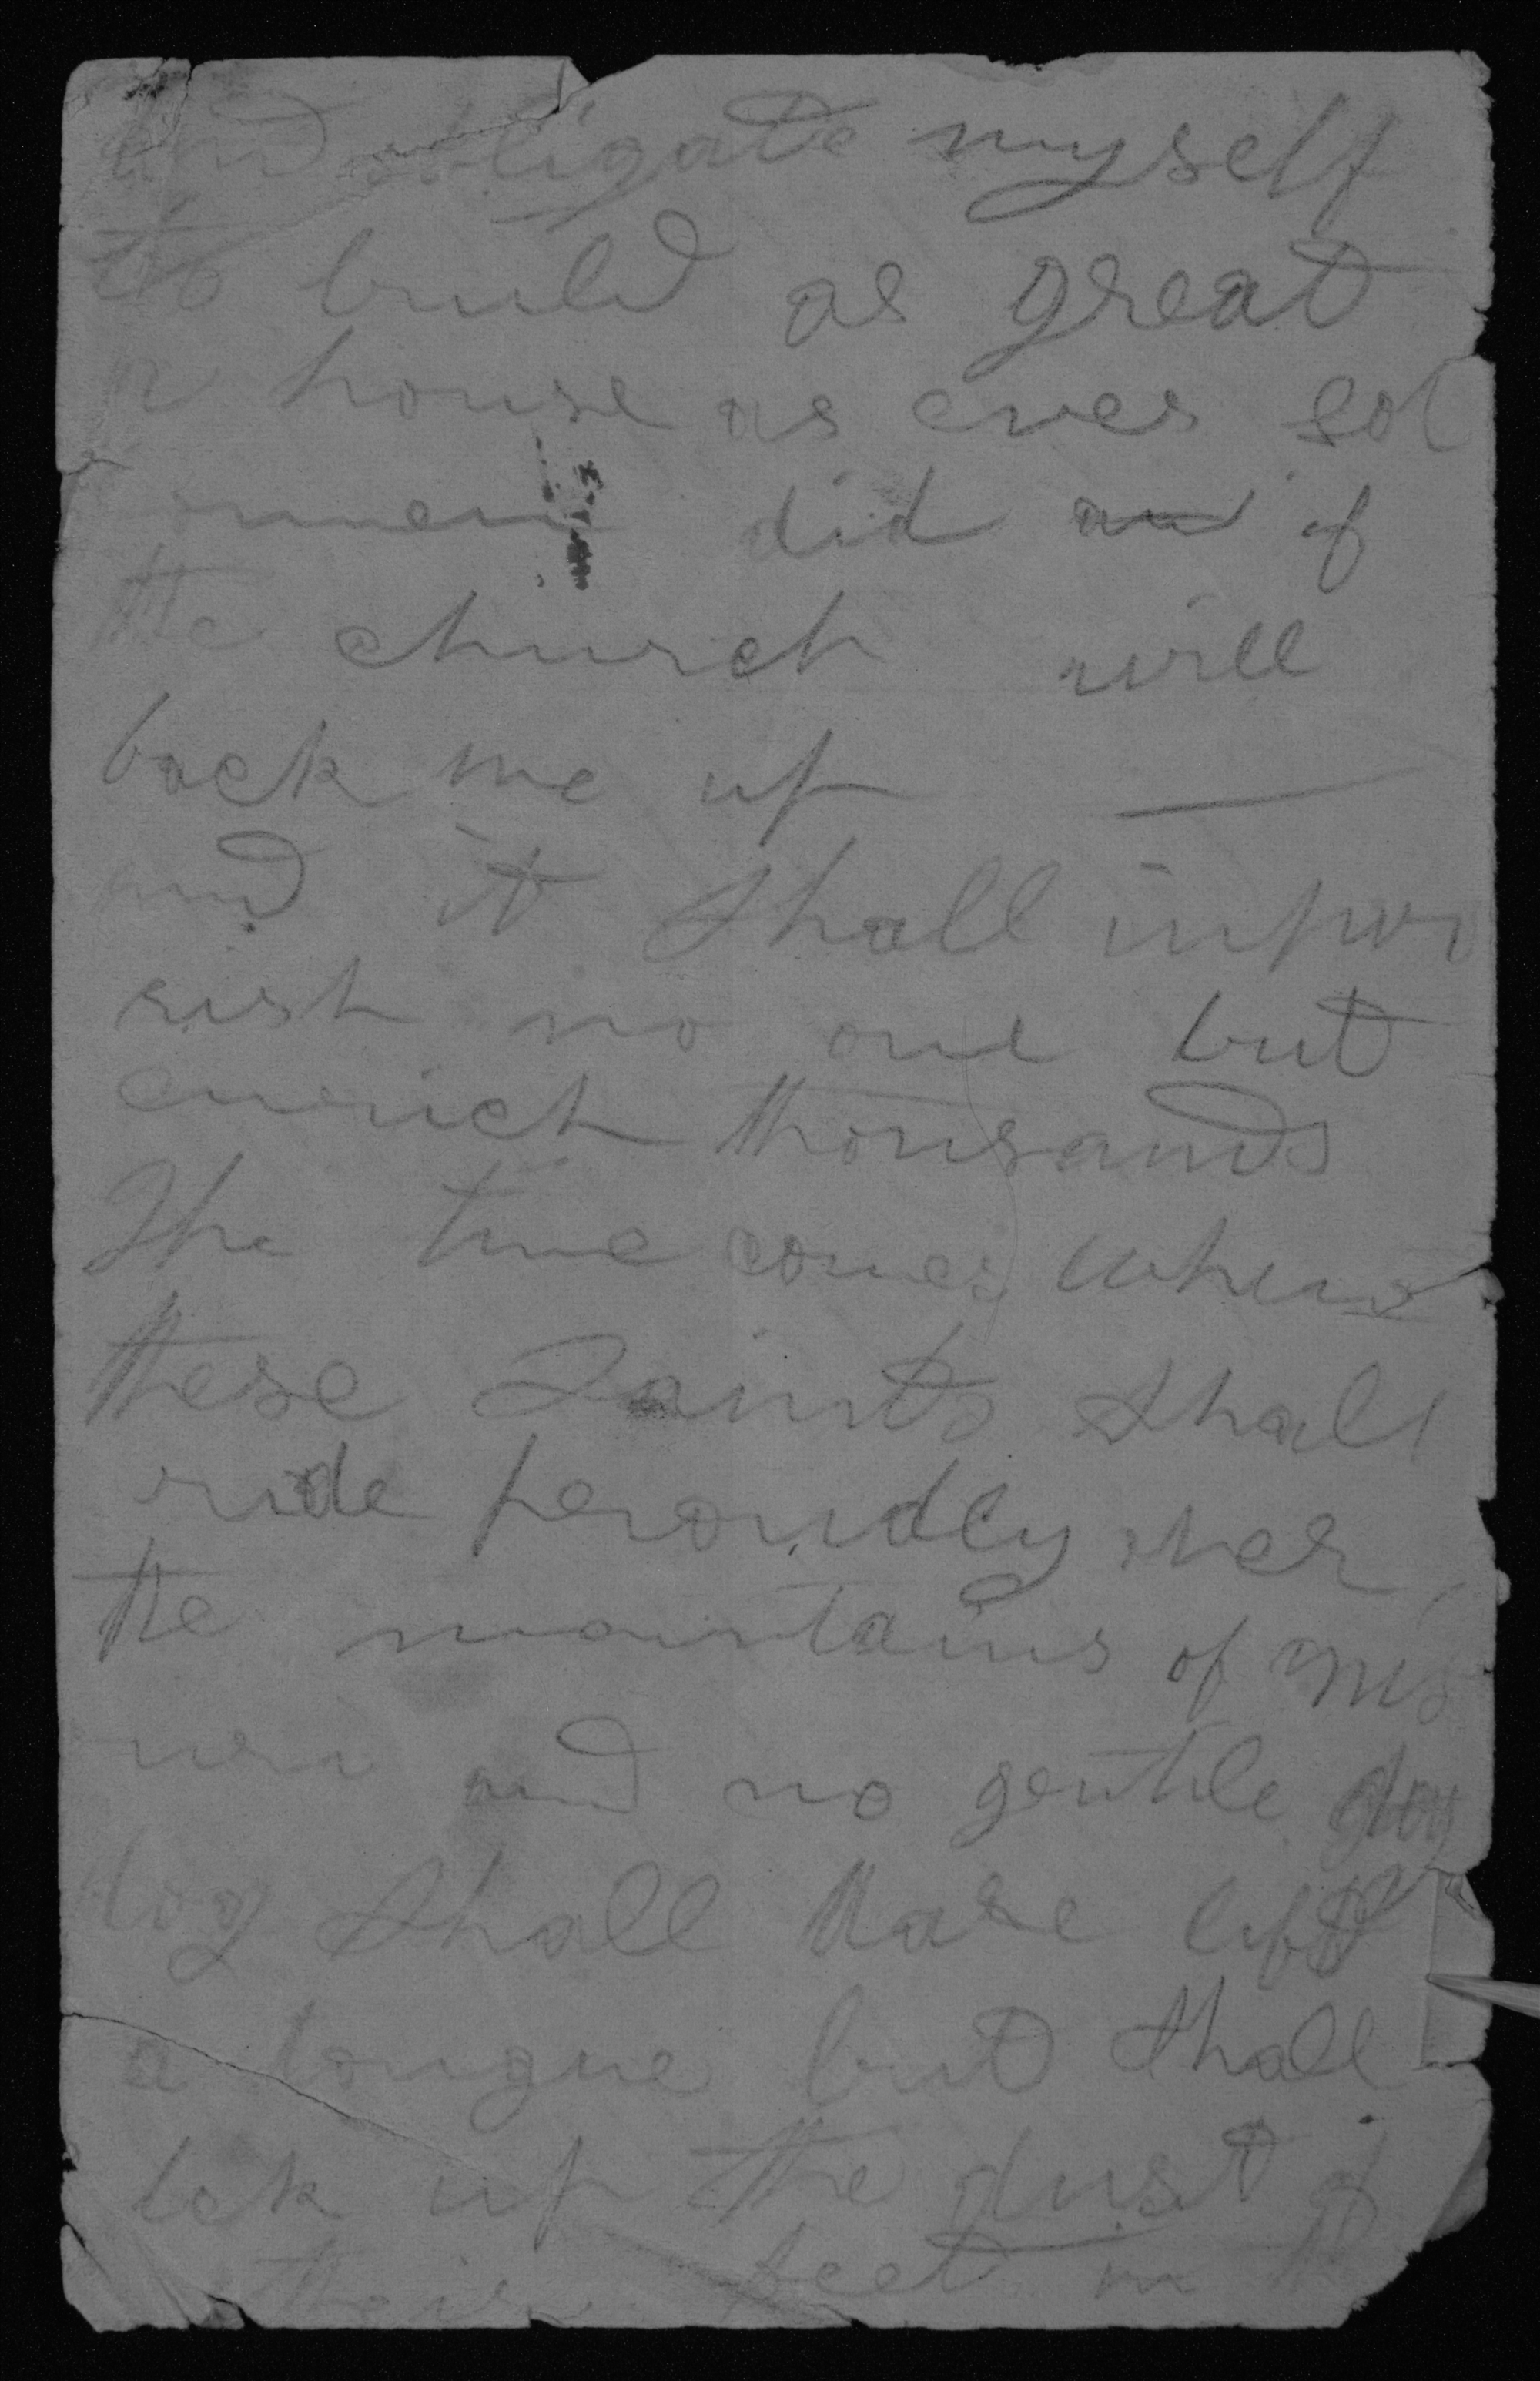 and obligate myself
to build as great
a house as ever sol
omen did an if
the church will
back me up —
and it shall inpov
rish no one but
enrich thousands
The time comes when
these Saints shall
ride peroudly over
the mountains of Mis
uri and no gentile dog
dog shall dare lift
a tongue but shall
lick up the dust of
their feet